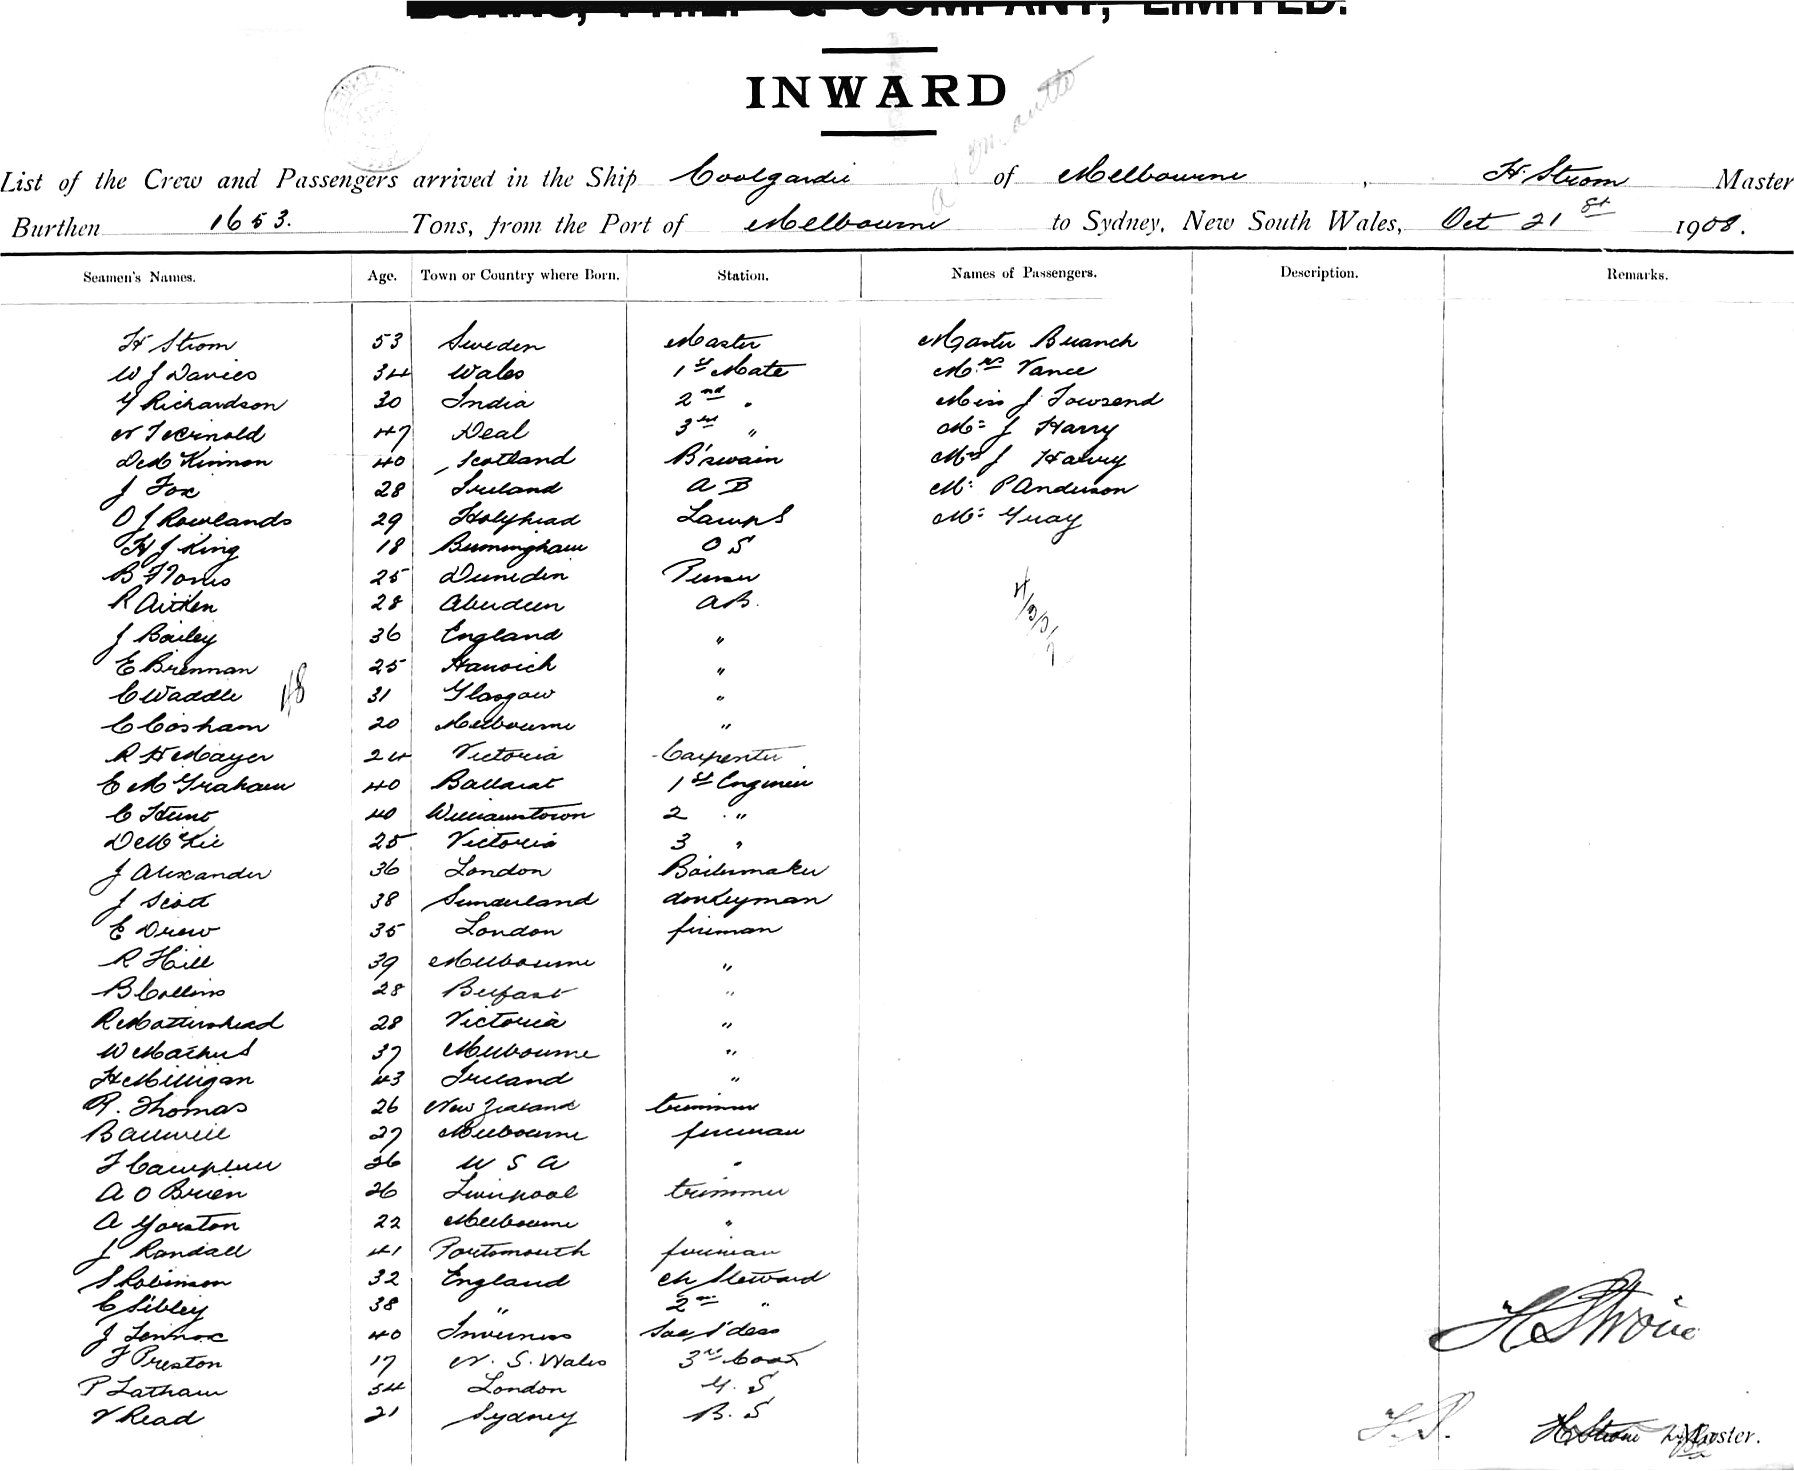 BURNS, PHILP & COMPANY, LIMITED.
INWARD
List of the Crew and Passengers arrived in the Ship Coolgardie of Melbourne, H. Strom Master
Burthen 1653. Tons, from the Port of Melbourne to Sydney, New South Wales, Oct 21st 1908.
Seamen's Names. Age. Town or Country where Born. Station. Names of Passengers. Description. Remarks.
H Strom 53 Sweden Master Master Branch
W J Davies 34 Wales 1st Mate Mrs Vance
Y Richardson 30 India 2nd " Miss J Towsend
47 Deal 3rd " Mr J Harry
D McKinnon 40 Scotland B'swain Mrs J Harry
J Fox 28 Ireland A B Mr P Anderson
O J Rowlands 29 Holyhead Lamps Mr Gray
H J King 18 Birmingham O S
25 Dunedin Purser
R Aitken 28 Aberdeen AB.
J Bailey 36 England "
E Brennan 25 Harwich "
C Waddle 31 Glasgow "
C Cosham 20 Melbourne "
R H Mayer 24 Victoria Carpenter
E McGraham 40 Ballarat 1st Engineer
C Hunt 40 Williamstown 2 "
D McKie 25 Victoria 3 "
J Alexander 36 London Boilermaker
J Scott 38 Sunderland donkeyman
E Drew 35 London fireman
R Hill 39 Melbourne "
B Collins 28 Belfast "
R Mattershead 28 Victoria "
W Mathers 37 Melbourne "
H Milligan 43 Ireland "
R. Thomas 26 New Zealand trimmer
B 27 Melbourne fireman
36 U S A "
A O Brien 26 Liverpool trimmer
A Yorston 22 Melbourne "
J Randall 41 Portsmouth fireman
S Robinson 32 England ch Steward
C Sibley 38 " 2nd "
J Lennox 40 Inverness
F Preston 17 N. S. Wales 3rd Cook
P Latham 34 London G. S
V Read 21 Sydney B. S
H Strom
H Strom Master.